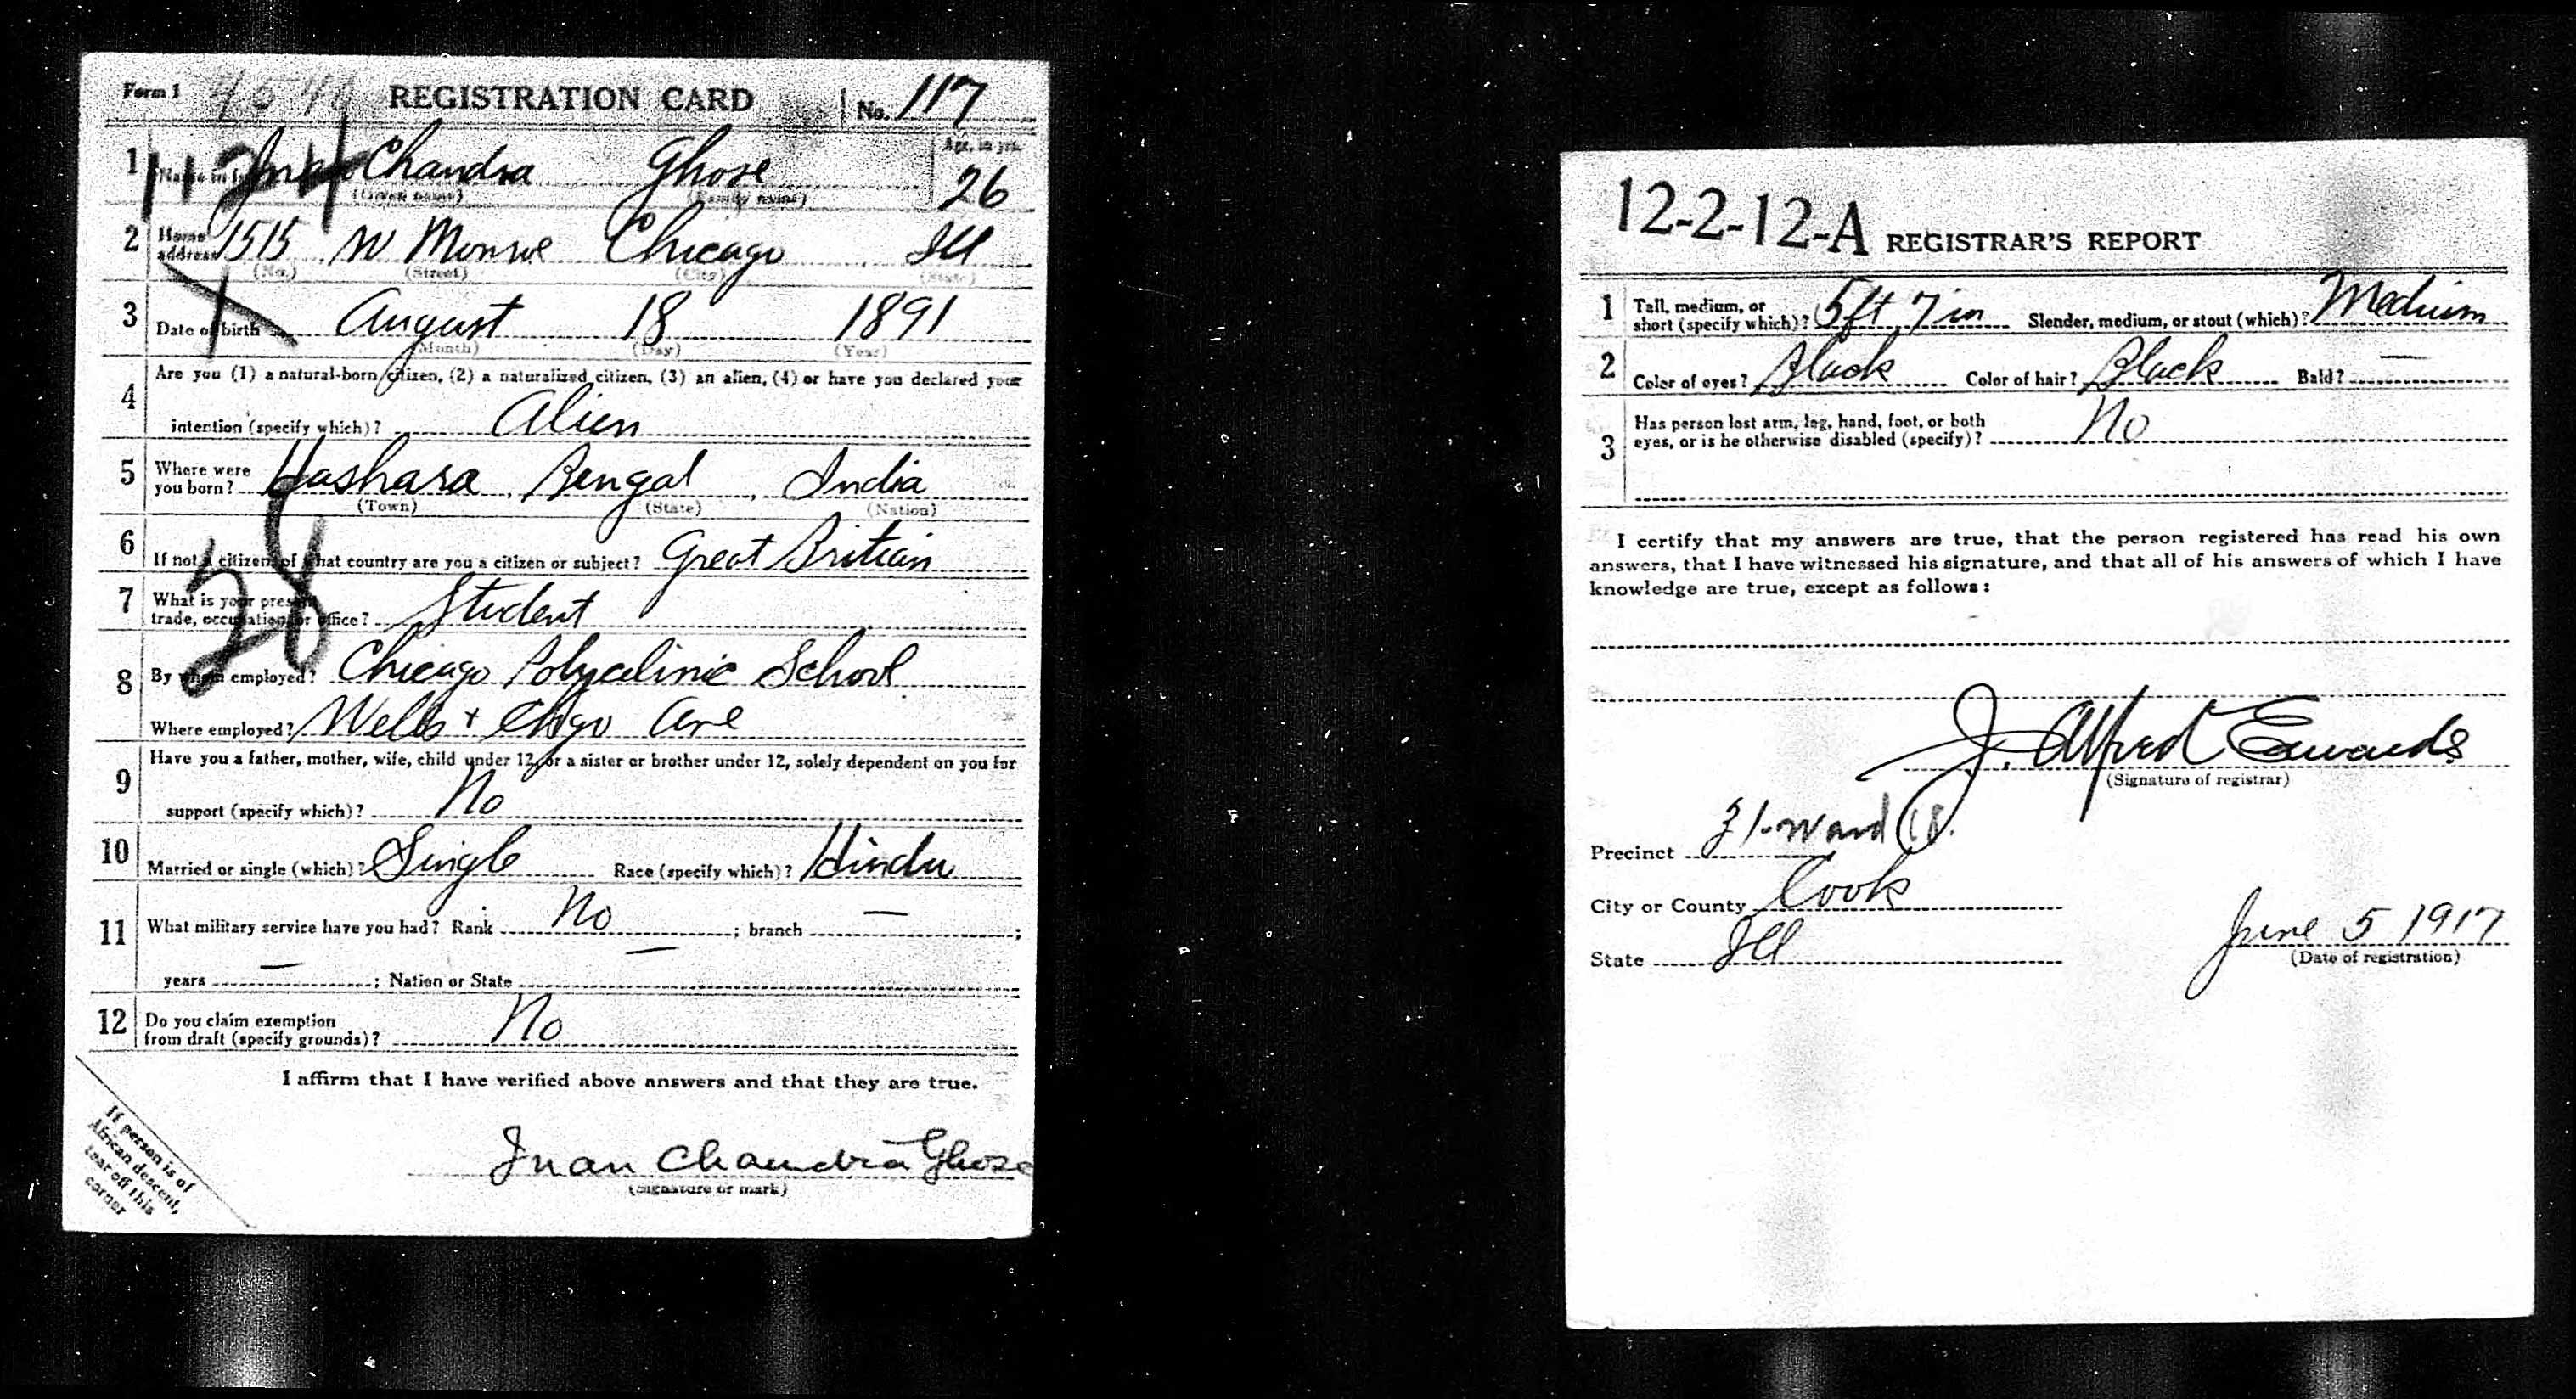 Form 1 4540 REGISTRATION CARD No. 117
1 Name in full Jnan Chandra Ghose Age, in yrs. 26
(Given name) (Family name)
1124
2 Home address 1515 W Monroe Chicago Ill
(No.) (Street) (City) (State)
3 Date of birth August 18 1891
(Month) (Day) (Year)
4 Are you (1) a natural-born citizen, (2) a naturalized citizen, (3) an alien, (4) or have you declared your
intention (specify which)? Alien
5 Where were you born? Hashara, Bengal, India
(Town) (State) (Nation)
6 If not a citizen, of what country are you a citizen or subject? Great Britian
7 What is your present trade, occupation, or office? Student
28
8 By whom employed? Chicago Polyclinic School
Where employed? Wells + Chgo Ave
9 Have you a father, mother, wife, child under 12, or a sister or brother under 12, solely dependent on you for
support (specify which)? No
10 Married or single (which)? Single Race (specify which)? Hindu
11 What military service have you had? Rank No ; branch — ;
years — ; Nation or State —
12 Do you claim exemption from draft (specify grounds)? No
I affirm that I have verified above answers and that they are true.
Jnan Chandra Ghose
(Signature or mark)
If person is of
African descent,
tear off this
corner
12-2-12-A REGISTRAR'S REPORT
1 Tall, medium, or short (specify which)? 5 ft 7 in Slender, medium, or stout (which)? Medium
2 Color of eyes? Black Color of hair? Black Bald? —
3 Has person lost arm, leg, hand, foot, or both
eyes, or is he otherwise disabled (specify)? No
I certify that my answers are true, that the person registered has read his own
answers, that I have witnessed his signature, and that all of his answers of which I have
knowledge are true, except as follows:
J. Alfred Edwards
(Signature of registrar)
Precinct 31-Ward 18.
City or County Cook
State Ill
June 5 1917
(Date of registration)